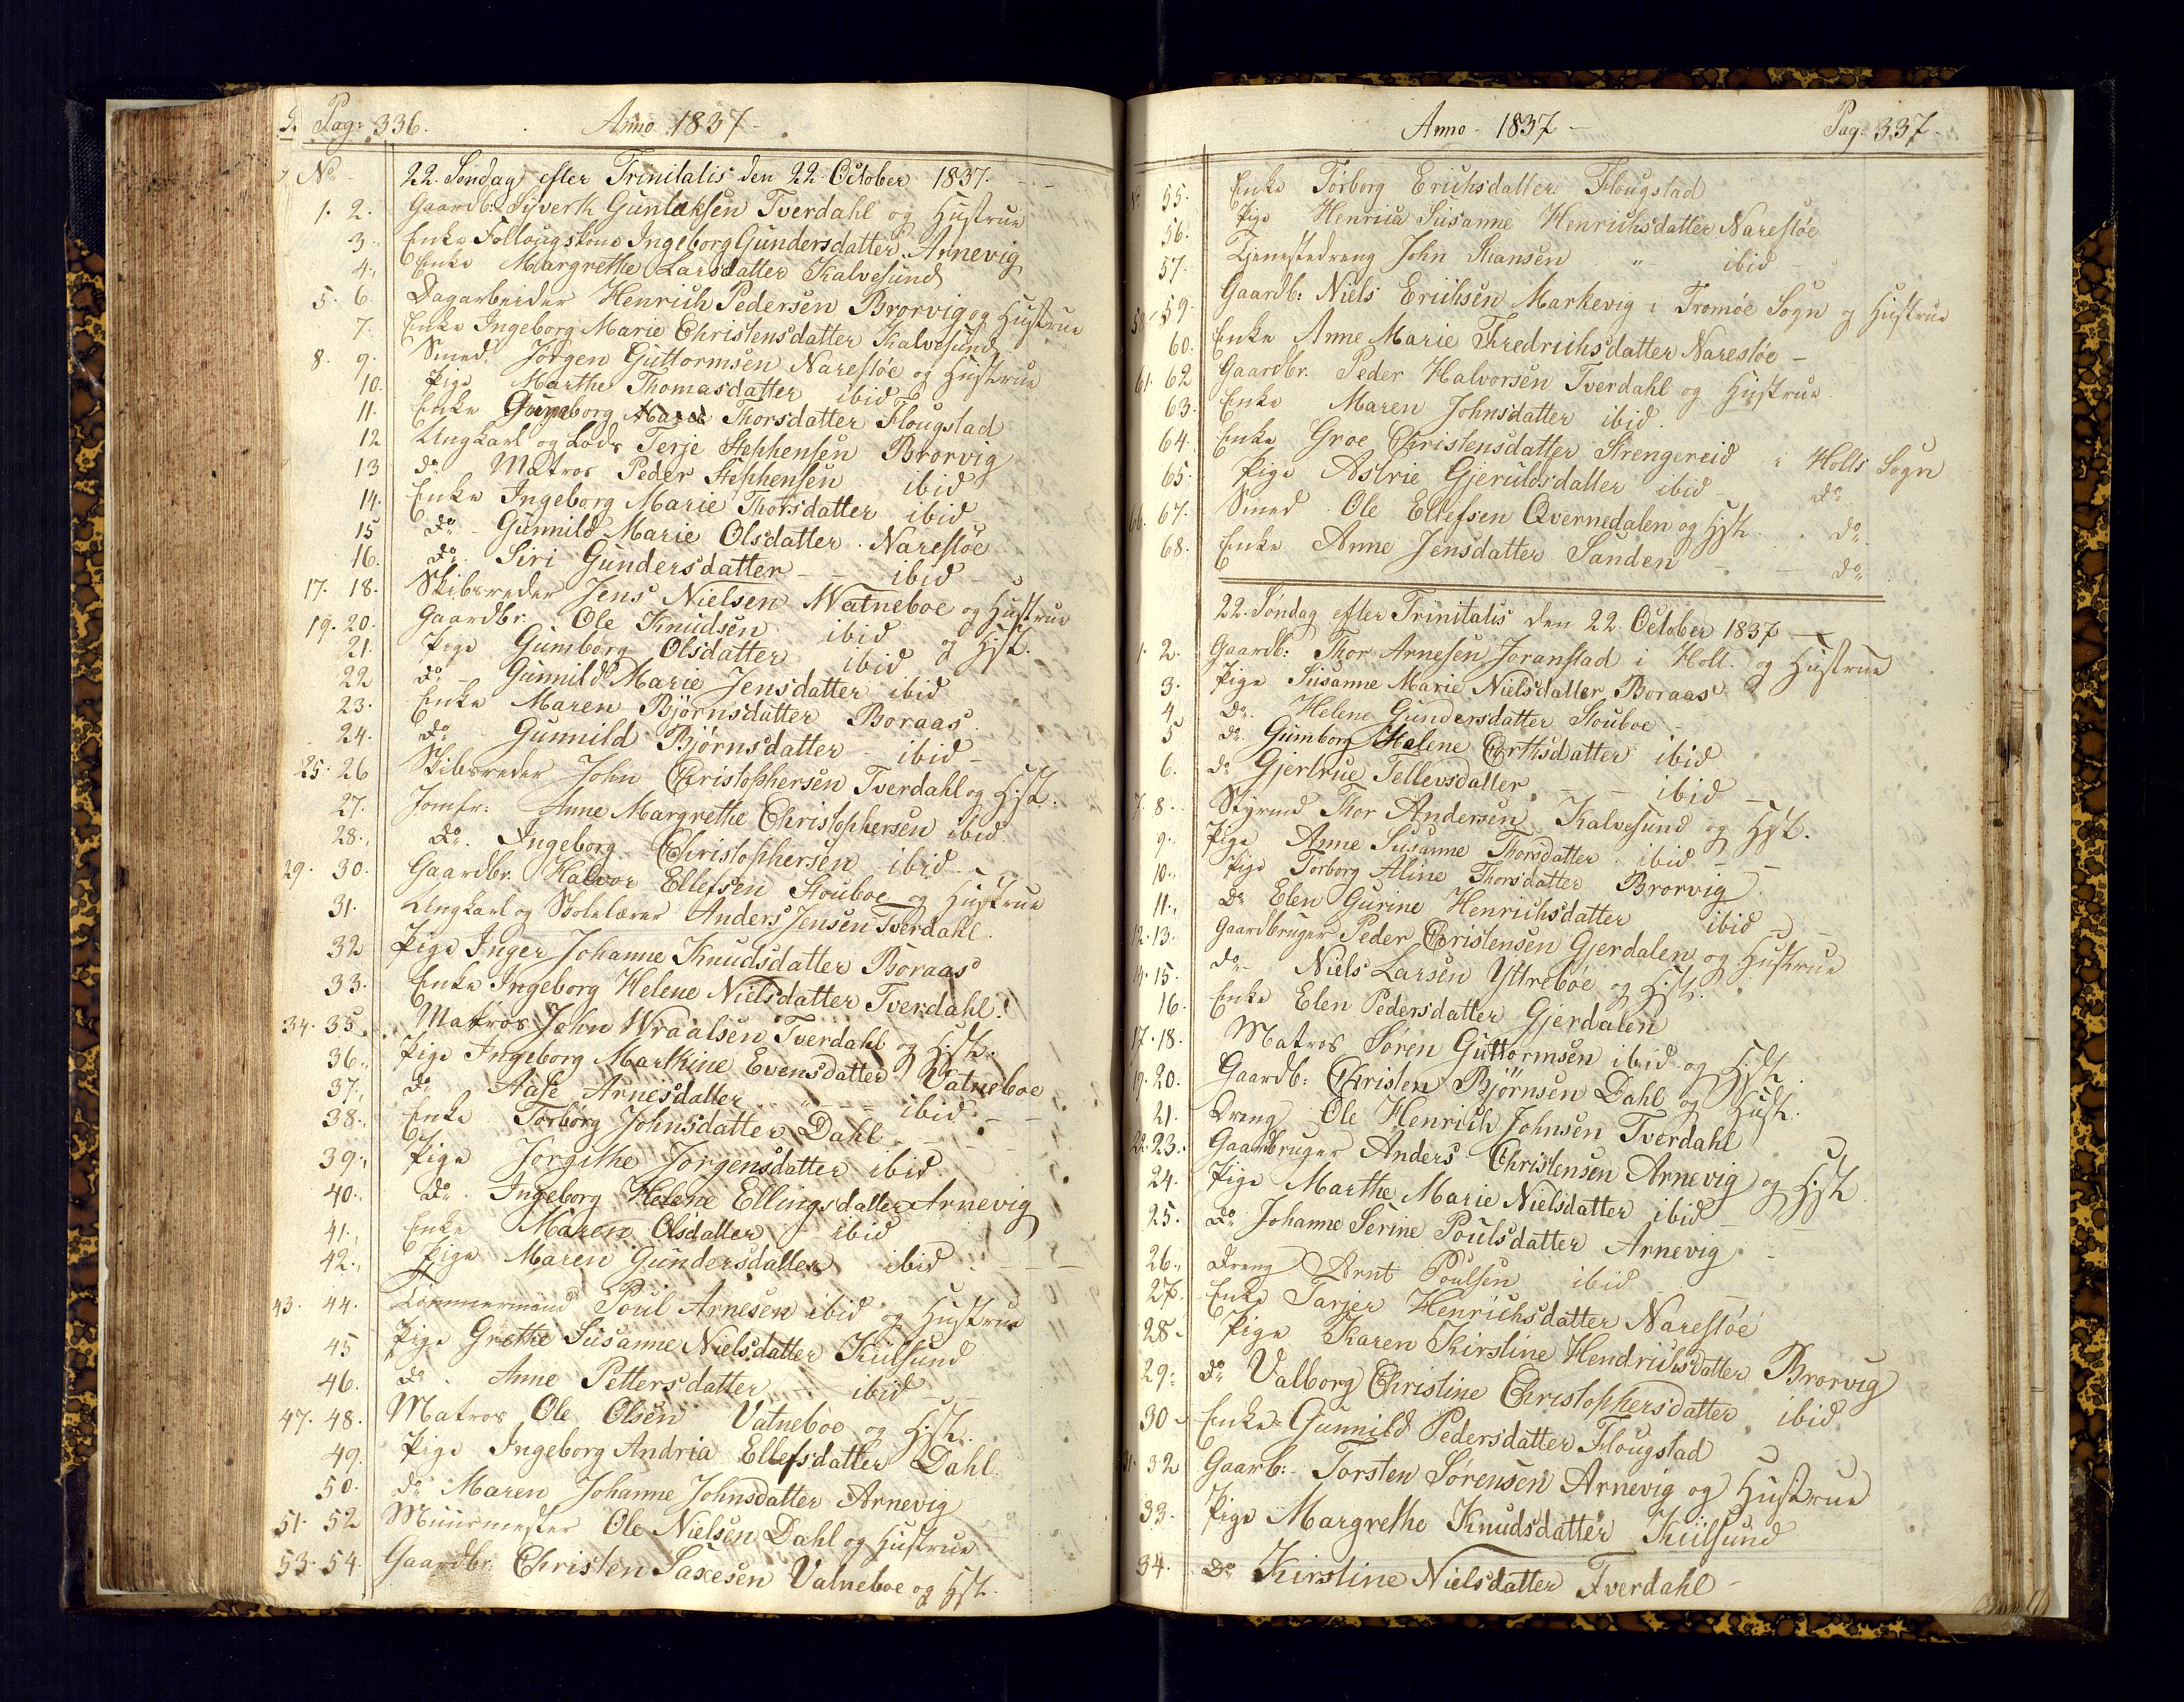 Pag: 336. Anno 1837
No 22. Søndag efter Trinitatis den 22 October 1837.
1. 2. Gaardb: Syverth Gunlaksen Tverdahl og Hustrue
3. Enke Follougskone Ingeborg Gundersdatter Arnevig
4. Enke Margrethe Larsdatter Kalvesund
5. 6. Dagarbeider Henrich Pedersen Brorvig og Hustrue
7. Enke Ingeborg Marie Christensdatter Kalvesund
8. 9. Smed. Jørgen Guttormsen Narestøe og Hustrue
10. Pige Marthe Thomasdatter ibid
11. Enke Thorsdatter Flougstad
12 Ungkarl og Lods Terje Stephensen Brorvig
13 do Matros Peder Stephensen ibid
14. Enke Ingeborg Marie Thorsdatter ibid
15 do Gunnild Marie Olsdatter Narestøe
16. do Siri Gundersdatter ibid
17. 18. Skibsreder Jens Nielsen Watneboe og Hustrue
19. 20. Gaardbr. Ole Knudsen ibid og Hst.
21. Pige Gumborg Olsdatter ibid
22 do Gunnild Marie Jensdatter ibid
23. Enke Maren Bjørnsdatter Boraas
24. do Gunnild Bjørnsdatter ibid
25. 26 Skibsreder John Christophersen Tverdahl og Hst.
27. Jomfr: Anne Margrethe Christophersen ibid
28. do. Ingeborg Christophersen ibid
29. 30. Gaardbr. Halvor Ellefsen Stouboe og Hustrue
31. Ungkarl og Skolelærer Anders Jensen Tverdahl
32 Pige Inger Johanne Knudsdatter Boraas
33. Enke Ingeborg Helene Nielsdatter Tverdahl.
34. 35. Matros John Wraalsen Tverdahl og Hst.
36. Pige Ingeborg Marthine Evensdatter Vatneboe
37. do Aase Arnesdatter ibid
38. Enke Torborg Johnsdatter Dahl
39. Pige Jorgithe Jorgensdatter ibid
40. do Ingeborg Helene Ellingsdatter Arnevig
41. Enke Maren Olsdatter ibid
42. Pige Maren Gundersdatter ibid
43. 44. Tømmermand Poul Arnesen ibid og Hustrue
45 Pige Grethe Susanne Nielsdatter Kiilsund
46. do. Anne Pettersdatter ibid
47. 48. Matros Ole Olsen Vatneboe og Hst.
49. Pige Ingeborg Andria Ellefsdatter Dahl.
50. do Maren Johanne Johnsdatter Arnevig
51. 52 Muurmester Ole Nielsen Dahl og Hustrue
53. 54. Gaardbr. Christen Saxesen Vatneboe og Hst.
Anno 1837 Pag: 337
55. Enke Torborg Erichsdatter Flougstad
56. Pige Henrica Susanne Henrichsdatter Narestøe
57. Tjenestedreng John Hansen ibid
58. 59. Gaardb: Niels Erichsen Markevig i Tromøe Sogn og Hustrue
60. Enke Anne Marie Fredrichsdatter Narestøe
61. 62 Gaardbr. Peder Halvorsen Tverdahl og Hustrue
63. Enke Maren Johnsdatter ibid.
64. Enke Groe Christensdatter Strengereid i Holts Sogn
65. Pige Astrie Gjeruldsdatter ibid do
66. 67. Smed Ole Ellefsen Qvernedalen og Hst. do
68. Enke Anne Jensdatter Sanden do
22. Søndag efter Trinitatis den 22. October 1837
1. 2. Gaardb: Thor Arnesen Joranstad i Holt. og Hustrue
3. Pige Susanne Marie Nielsdatter Boraas
4 do. Helene Gundersdatter Stouboe
5 do. Gumborg Helene ibid
6. do Gjertrue Tellevsdatter ibid
7. 8. Styrmd Thor Andersen Kalvesund og Hst.
9. Pige Anne Susanne Thorsdatter ibid
10. Pige Torborg Aline Thorsdatter Brorvig
11. do Elen Gurine Henrichsdatter ibid
12. 13. Gaardbruger Peder Christensen Gjerdalen og Hustrue
14. 15. do Niels Larsen Yttrebøe og Hst.
16. Enke Elen Pedersdatter Gjerdalen
17. 18. Matros Søren Guttormsen ibid og Hst.
19. 20. Gaardb: Christen Bjørnsen Dahl og Hust.
21. Dreng Ole Henrich Johnsen Tverdahl
22. 23. Gaardbruger Anders Christensen Arnevig og Hst.
24. Pige Marthe Marie Nielsdatter ibid
25. do Johanne Serine Poulsdatter Arnevig
26. Dreng Arnt Poulsen ibid
27. Enke Tarjer Henrichsdatter Narestøe
28. Pige Karen Kirstine Hendrichsdatter Brorvig
29. do Valborg Christine Christophersdatter ibid
30 Enke Gunnild Pedersdatter Flougstad
31. 32 Gaarb: Torsten Sørensen Arnevig og Hustrue
33. Pige Margrethe Knudsdatter Kiilsund
34. do Kirstine Nielsdatter Tverdahl